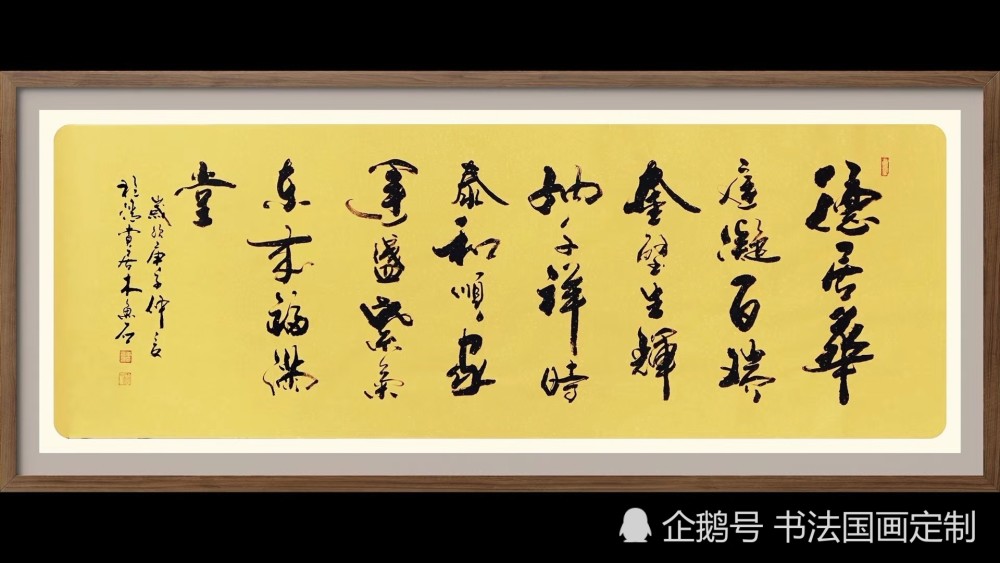 德居華
庭凝百瑞
奎壁生輝
納千祥時
泰和順家
運盛紫氣
東來福滿
堂
歲於庚子仲夏
書居木魚石
企鹅号 书法国画定制